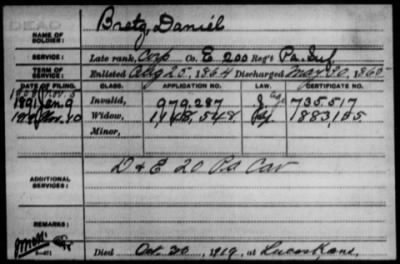 DEAD
NAME OF SOLDIER: Bretz, Daniel
SERVICE: Late rank, Corp Co. E 200 Reg't Pa. Inf
TERM OF SERVICE: Enlisted Aug 25, 1864 Discharged May 30, 1865
DATE OF FILING. CLASS. APPLICATION NO. LAW. CERTIFICATE NO.
1891 Jan 9 Invalid, 979,287 735,517
Nov. 10 Widow, 1148,548 883,185
Minor,
D & E 20 Pa Cav
ADDITIONAL SERVICES:
REMARKS:
Died Oct. 30, 1919, at Lucas Kans,